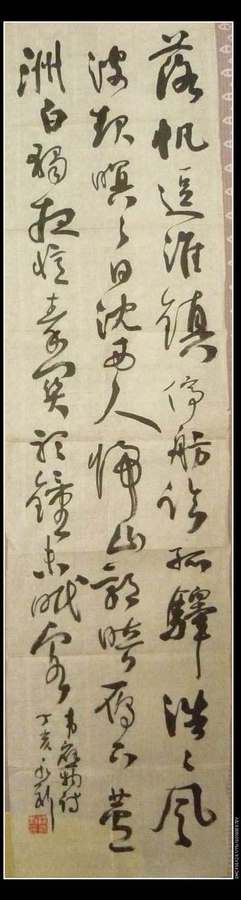 落帆逗淮鎮停舫臨孤驛浩々風
波起暝々日沈夕人歸山郭暗雁下蘆
洲白獨夜憶秦關聽鐘未眠客
韋應物詩
丁亥